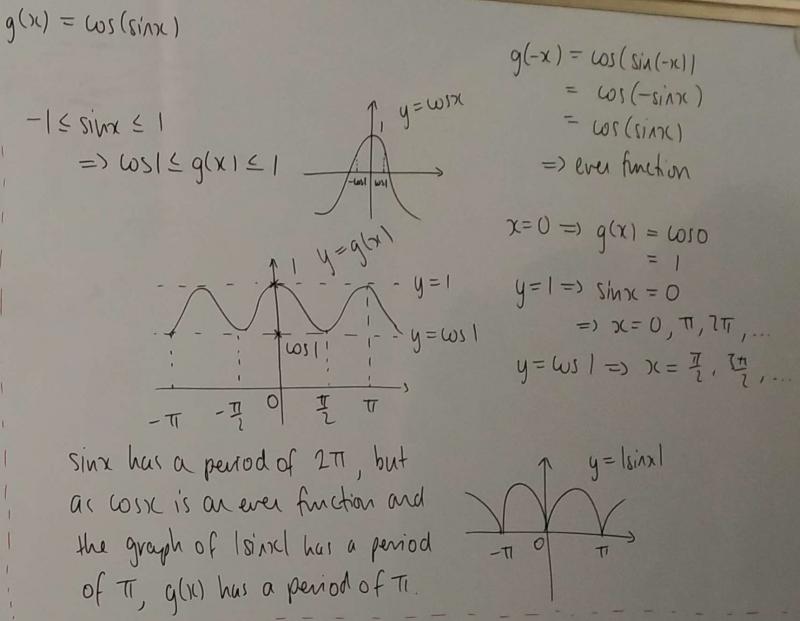 g(x) = cos(sinx)
-1 ≤ sinx ≤ 1
=> cos1 ≤ g(x) ≤ 1
y=cosx
1
-cos1 cos1
g(-x) = cos(sin(-x))
= cos(-sinx)
= cos(sinx)
=> even function
x=0 => g(x) = cos0
= 1
y=1 => sinx = 0
=> x=0, π, 2π, ...
y=cos1 => x= π/2, 3π/2, ...
y=g(x)
1
y=1
y=cos1
cos1
-π -π/2 0 π/2 π
sinx has a period of 2π, but
as cosx is an even function and
the graph of |sinx| has a period
of π, g(x) has a period of π.
y=|sinx|
-π 0 π